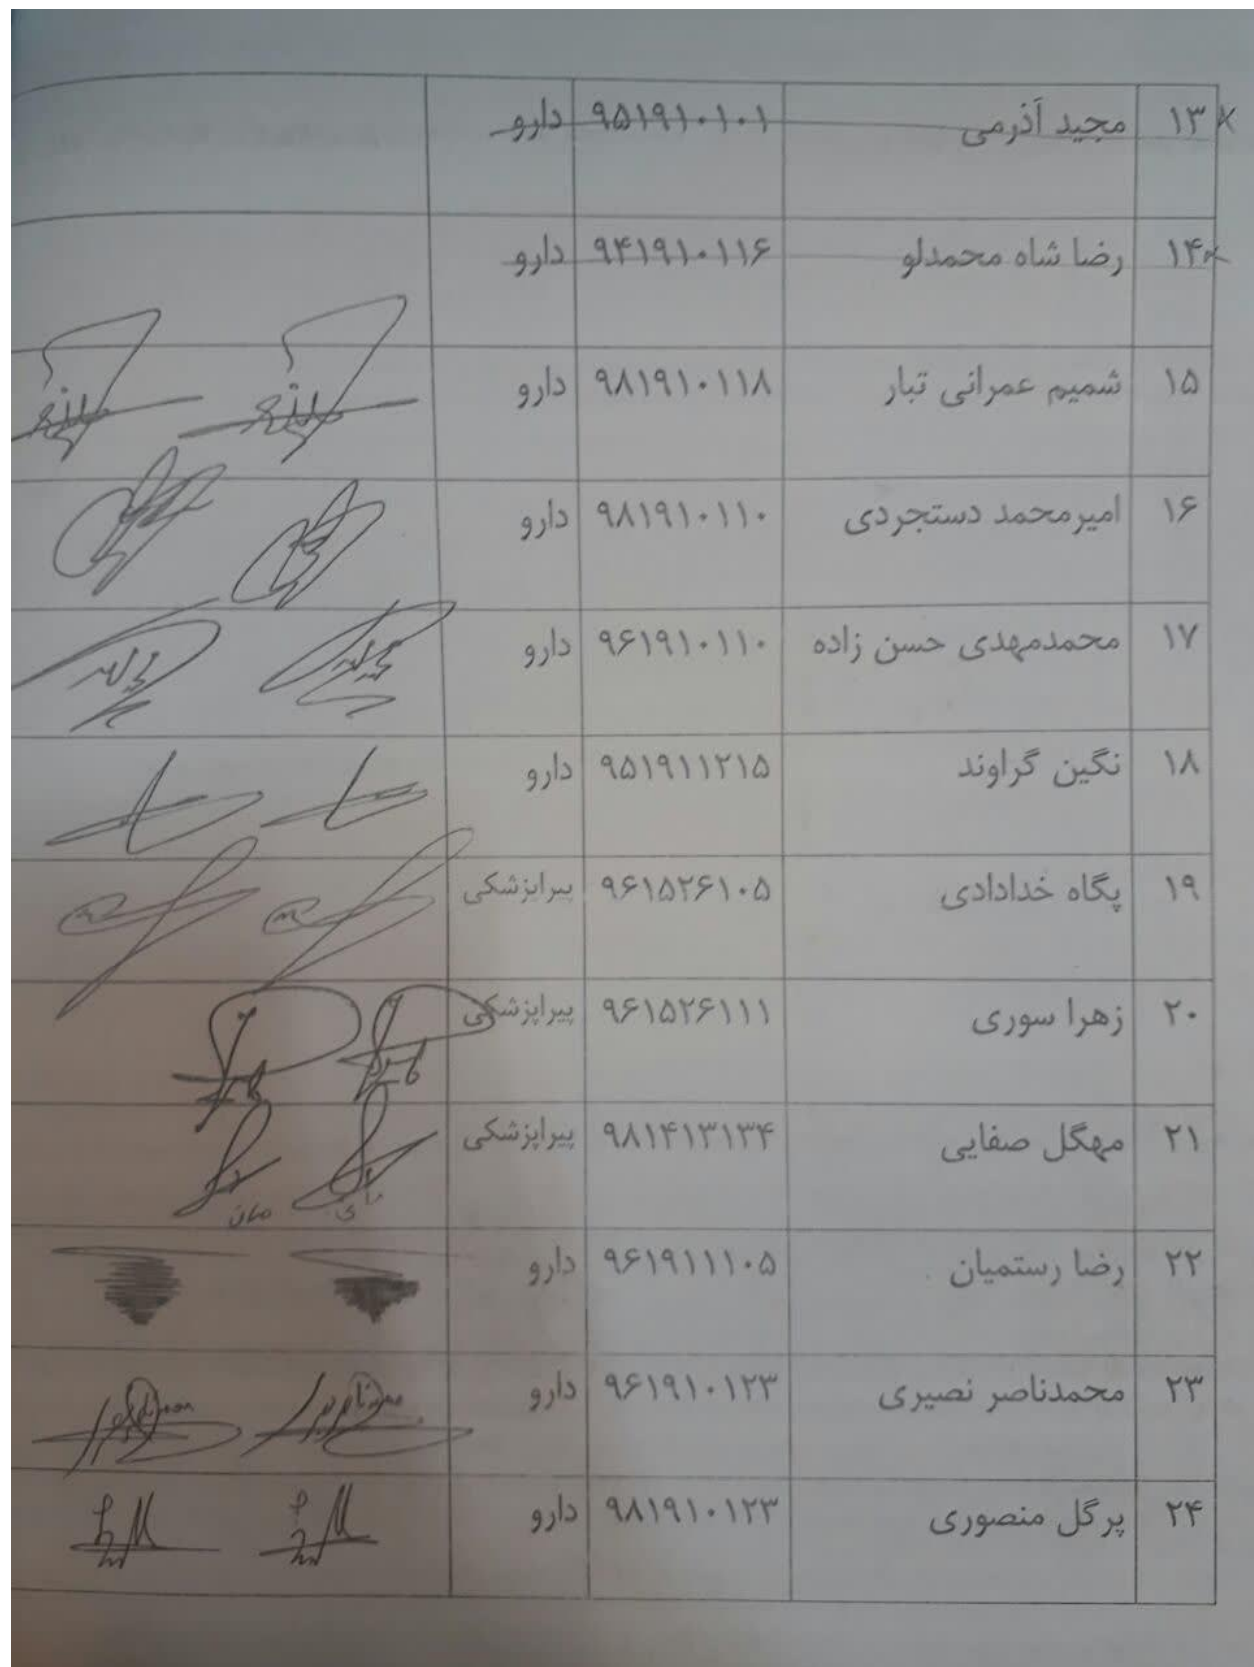 ۱۳ مجید آذرمی ۹۵۱۹۱۰۱۰۱ دارو
۱۴ رضا شاه محمدلو ۹۴۱۹۱۰۱۱۶ دارو
۱۵ شمیم عمرانی تبار ۹۸۱۹۱۰۱۱۸ دارو
۱۶ امیرمحمد دستجردی ۹۸۱۹۱۰۱۱۰ دارو
۱۷ محمدمهدی حسن زاده ۹۶۱۹۱۰۱۱۰ دارو
۱۸ نگین گراوند ۹۵۱۹۱۱۲۱۵ دارو
۱۹ پگاه خدادادی ۹۶۱۵۲۶۱۰۵ پیراپزشکی
۲۰ زهرا سوری ۹۶۱۵۲۶۱۱۱ پیراپزشکی
۲۱ مهگل صفایی ۹۸۱۴۱۳۱۳۴ پیراپزشکی
۲۲ رضا رستمیان ۹۶۱۹۱۱۱۰۵ دارو
۲۳ محمدناصر نصیری ۹۶۱۹۱۰۱۲۳ دارو
۲۴ پرگل منصوری ۹۸۱۹۱۰۱۲۳ دارو